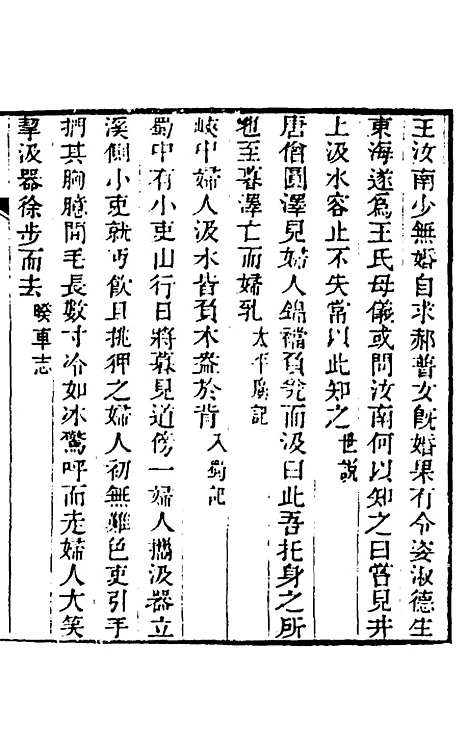 王汝南少無婚自求郝普女旣婚果有令姿淑德生
東海遂爲王氏母儀或問汝南何以知之曰嘗見井
上汲水容止不失常以此知之世説
唐僧圓澤見婦人錦襠負甕而汲曰此吾托身之所
也至暮澤亡而婦乳太平廣記
峽中婦人汲水皆負木盎於背入蜀記
蜀中有小吏山行日將暮見道傍一婦人攜汲器立
溪側小吏就丐飲且挑狎之婦人初無難色吏引手
捫其胸臆間毛長數寸冷如冰驚呼而走婦人大笑
挈汲器徐步而去睽車志